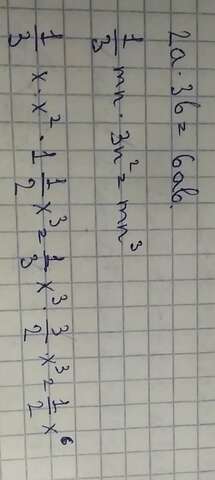 2a · 3b = 6ab.
1/3 mn · 3n² = mn³
1/3 x · x² · 1 1/2 x³ = 1/3 x³ · 3/2 x³ = 1/2 x⁶